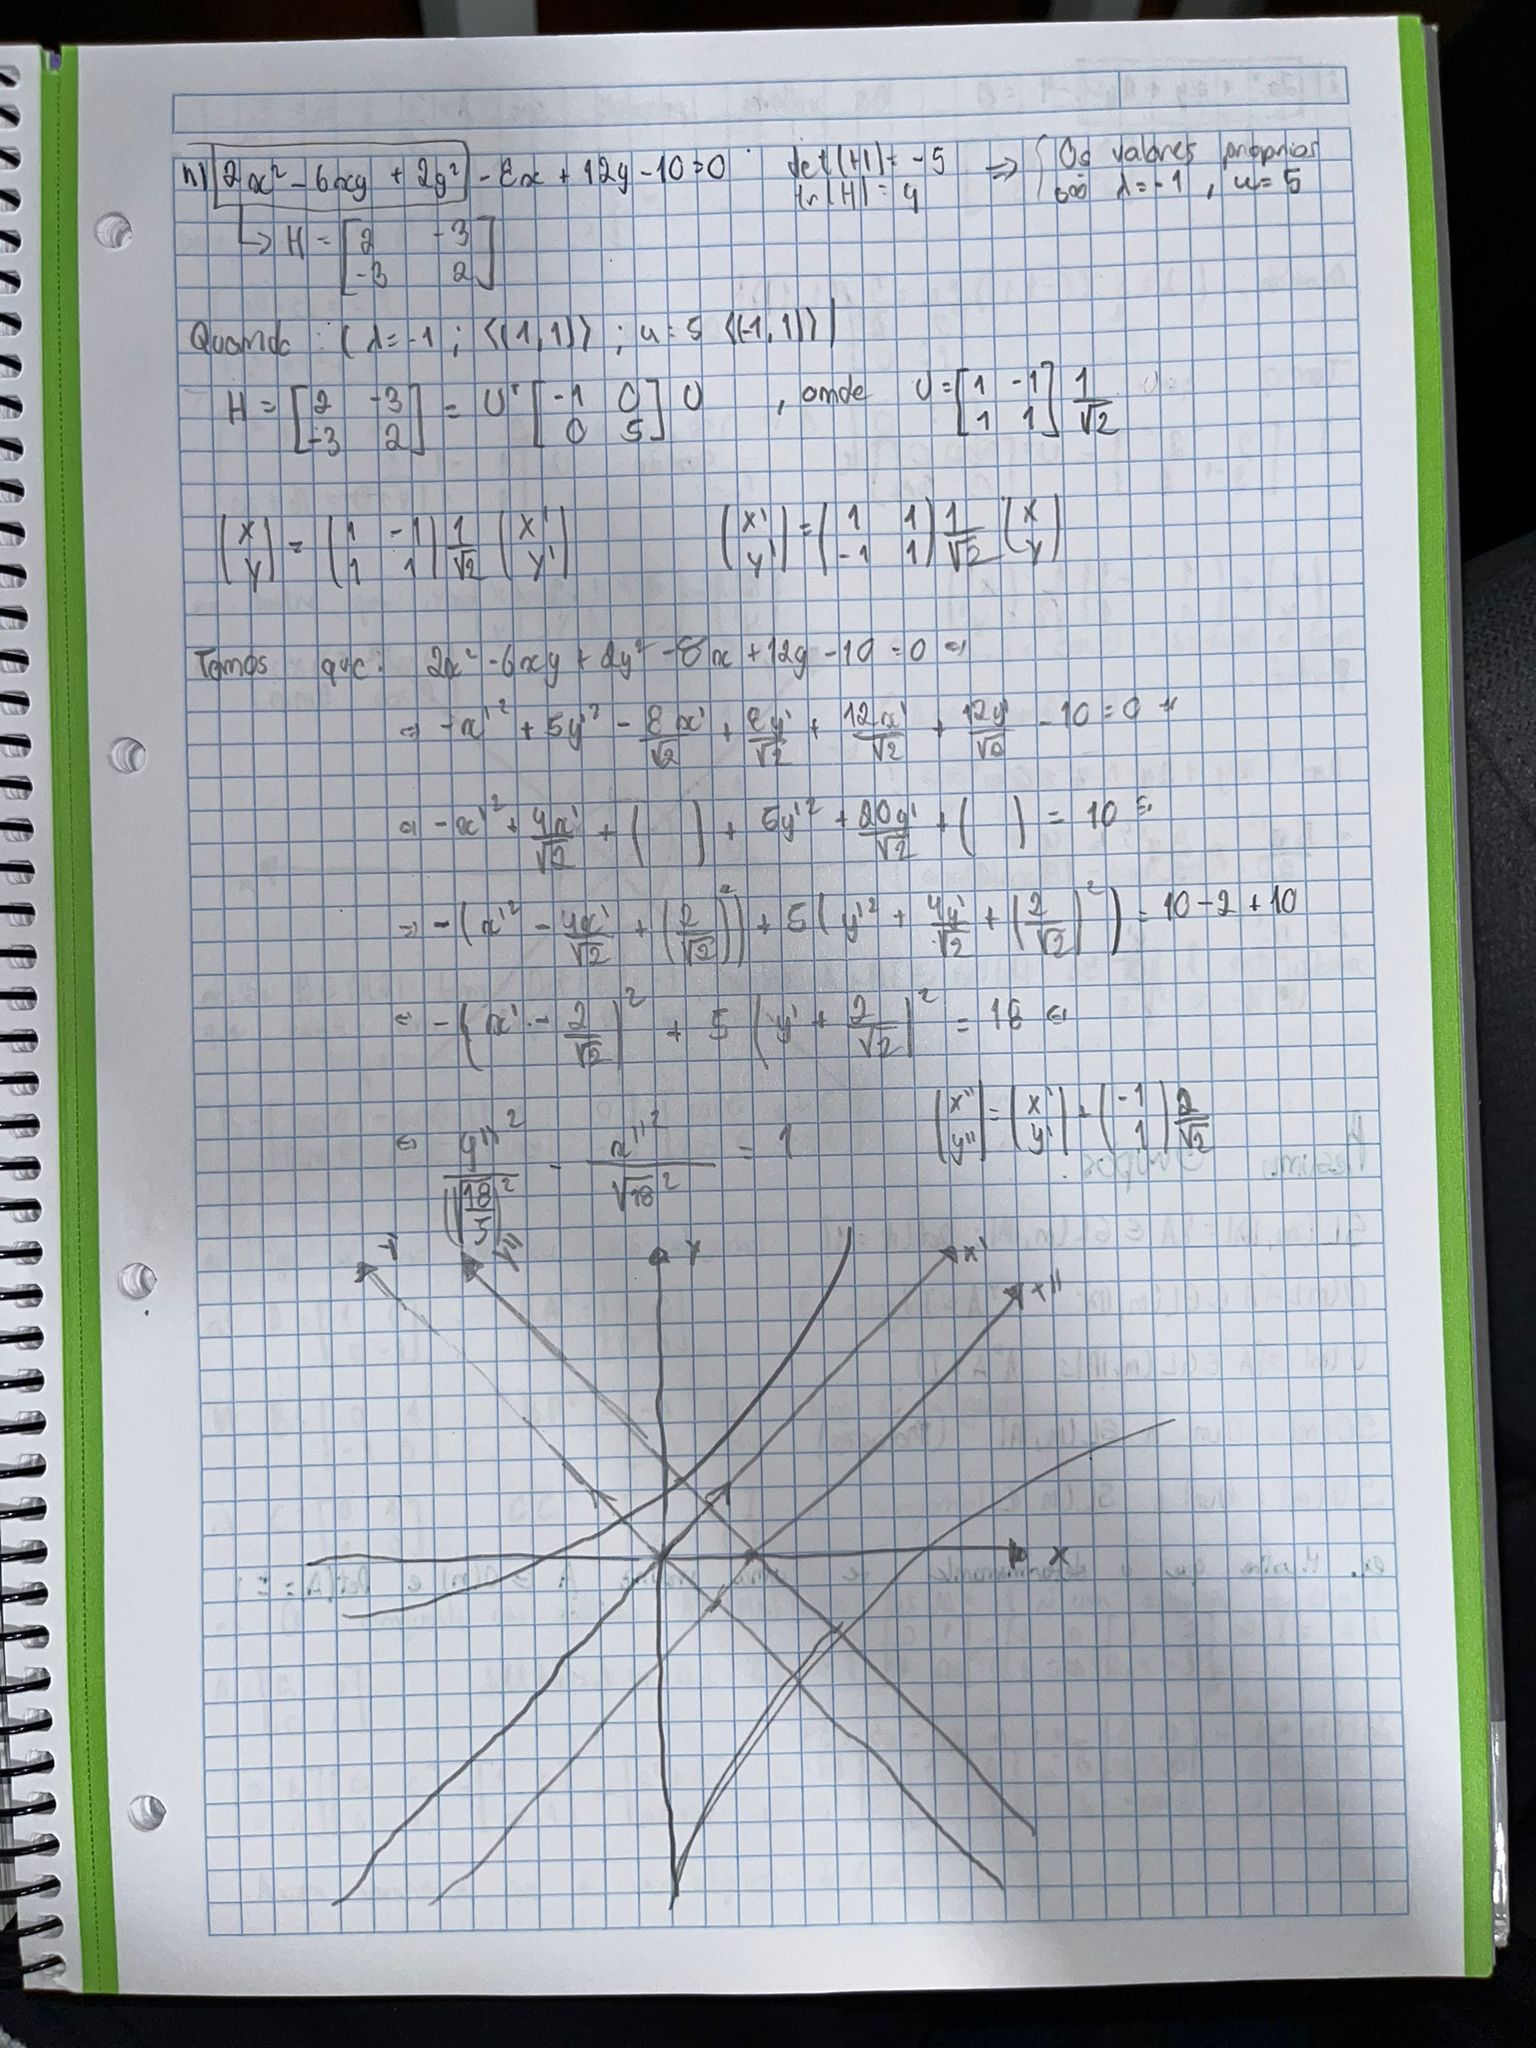 n) 2x² - 6xy + 2y² - 8x + 12y - 10 = 0 det(H) = -5 ⇒ Os valores próprios
tr(H) = 4 são λ = -1, u = 5
↳ H = [2 -3; -3 2]
Quando: (λ = -1; ⟨(1,1)⟩; u = 5 ⟨(-1,1)⟩)
H = [2 -3; -3 2] = Uᵀ [-1 0; 0 5] U, onde U = [1 -1; 1 1] 1/√2
(x; y) = (1 -1; 1 1) 1/√2 (x'; y') (x'; y') = (1 1; -1 1) 1/√2 (x; y)
Temos que: 2x² - 6xy + 2y² - 8x + 12y - 10 = 0 ⇔
⇔ -x'² + 5y'² - 8x'/√2 + 8y'/√2 + 12x'/√2 + 12y'/√2 - 10 = 0 ⇔
⇔ -x'² + 4x'/√2 + ( ) + 5y'² + 20y'/√2 + ( ) = 10 ⇔
⇔ -(x'² - 4x'/√2 + (2/√2)²) + 5(y'² + 4y'/√2 + (2/√2)²) = 10 - 2 + 10
⇔ -(x' - 2/√2)² + 5(y' + 2/√2)² = 18 ⇔
⇔ y''²/(√(18/5))² - x''²/√18² = 1 (x''; y'') = (x'; y') + (-1; 1) 2/√2
y' y'' y x'
x''
x